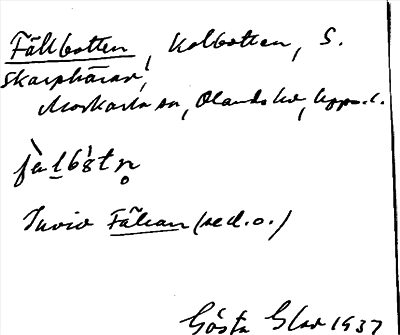 Fällbotten, Kolbotten, S.
Skarphärar,
Morkarla sn, Olands hd, Upps. l.
Invid Fälran (se d. o.)
Gösta Glad 1937